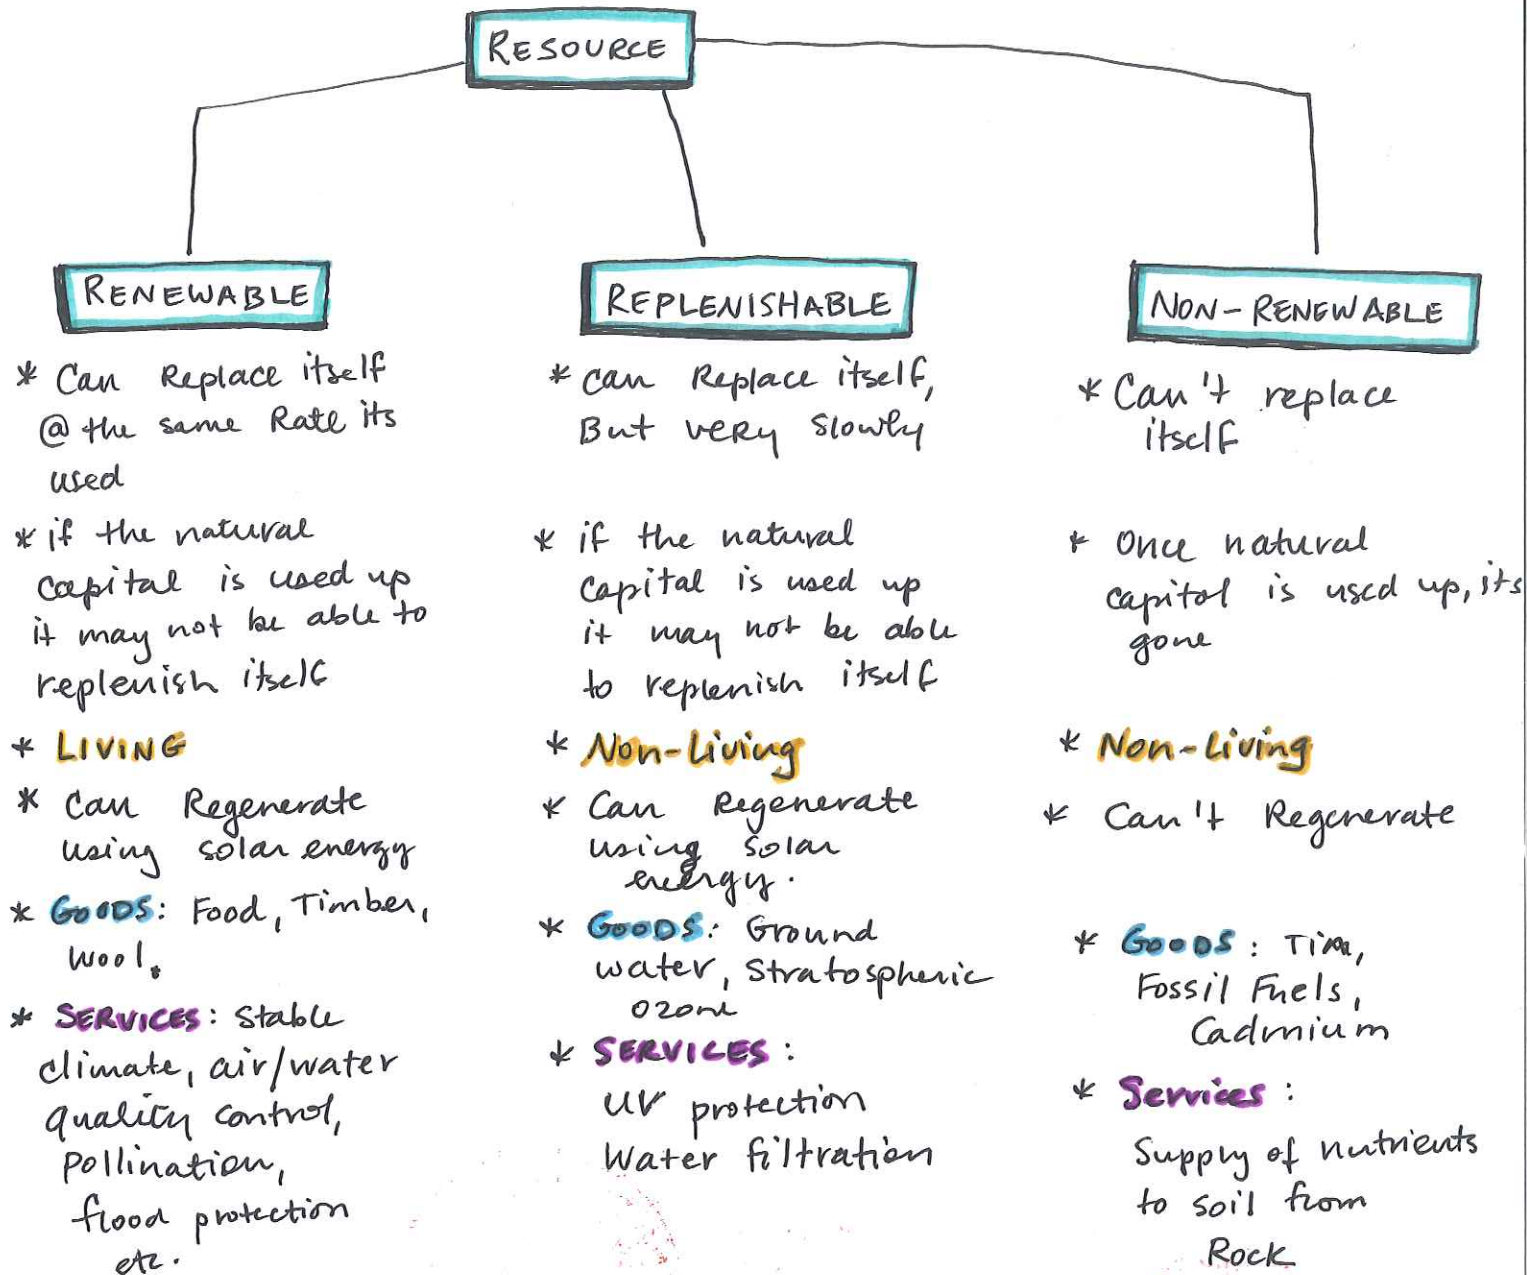 RESOURCE
RENEWABLE
* Can Replace itself
@ the same Rate its
used
* if the natural
capital is used up
it may not be able to
replenish itself
* LIVING
* Can Regenerate
using solar energy
* GOODS: Food, Timber,
wool.
* SERVICES: Stable
climate, air/water
quality control,
Pollination,
flood protection
etc.
REPLENISHABLE
* can Replace itself,
But very slowly
* if the natural
capital is used up
it may not be able
to replenish itself
* Non-Living
* Can Regenerate
using solar
energy.
* GOODS: Ground
water, Stratospheric
ozone
* SERVICES:
UV protection
Water filtration
NON-RENEWABLE
* Can't replace
itself
* Once natural
capitol is used up, its
gone
* Non-Living
* Can't Regenerate
* GOODS:
Fossil Fuels,
Cadmium
* Services:
Supply of nutrients
to soil from
Rock